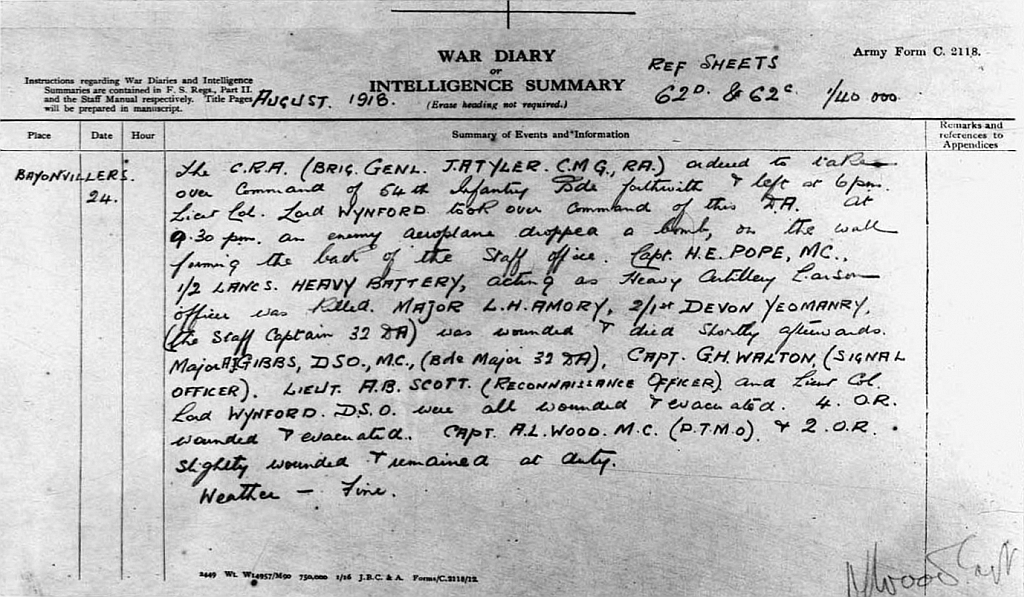 WAR DIARY
or
INTELLIGENCE SUMMARY
(Erase heading not required.)
Army Form C. 2118.
Instructions regarding War Diaries and Intelligence
Summaries are contained in F. S. Regs., Part II.
and the Staff Manual respectively. Title Pages
will be prepared in manuscript.
AUGUST. 1918.
REF SHEETS
62D. & 62C. 1/40 000
Place Date Hour Summary of Events and Information Remarks and
references to
Appendices
BAYONVILLERS.
24.
The C.R.A. (BRIG. GENL. J.A TYLER. C.M.G., RA.) ordered to take
over Command of 64th Infantry Bde forthwith & left at 6 pm.
Lieut Col. Lord WYNFORD took over command of this D.A. At
9.30 pm. an enemy aeroplane dropped a bomb, on the wall
forming the back of the Staff office. Capt. H.E. POPE, MC.,
1/2 LANCS. HEAVY BATTERY, acting as Heavy Artillery Liaison
officer was killed. MAJOR L.H. AMORY, 2/1st DEVON YEOMANRY,
(the Staff Captain 32 DA) was wounded & died shortly afterwards.
Major A GIBBS, DSO., M.C., (Bde Major 32 DA), CAPT. G.H. WALTON, (SIGNAL
OFFICER), LIEUT. A.B. SCOTT. (RECONNAISSANCE OFFICER) and Lieut Col.
Lord WYNFORD. D.S.O. were all wounded & evacuated. 4. O.R.
wounded & evacuated. CAPT. A.L. WOOD. M.C. (D.T.M.O). & 2. O.R.
slightly wounded & remained at duty.
Weather – Fine.
2449 Wt. W14957/M90 750,000 1/16 J.B.C. & A. Forms/C.2118/12.